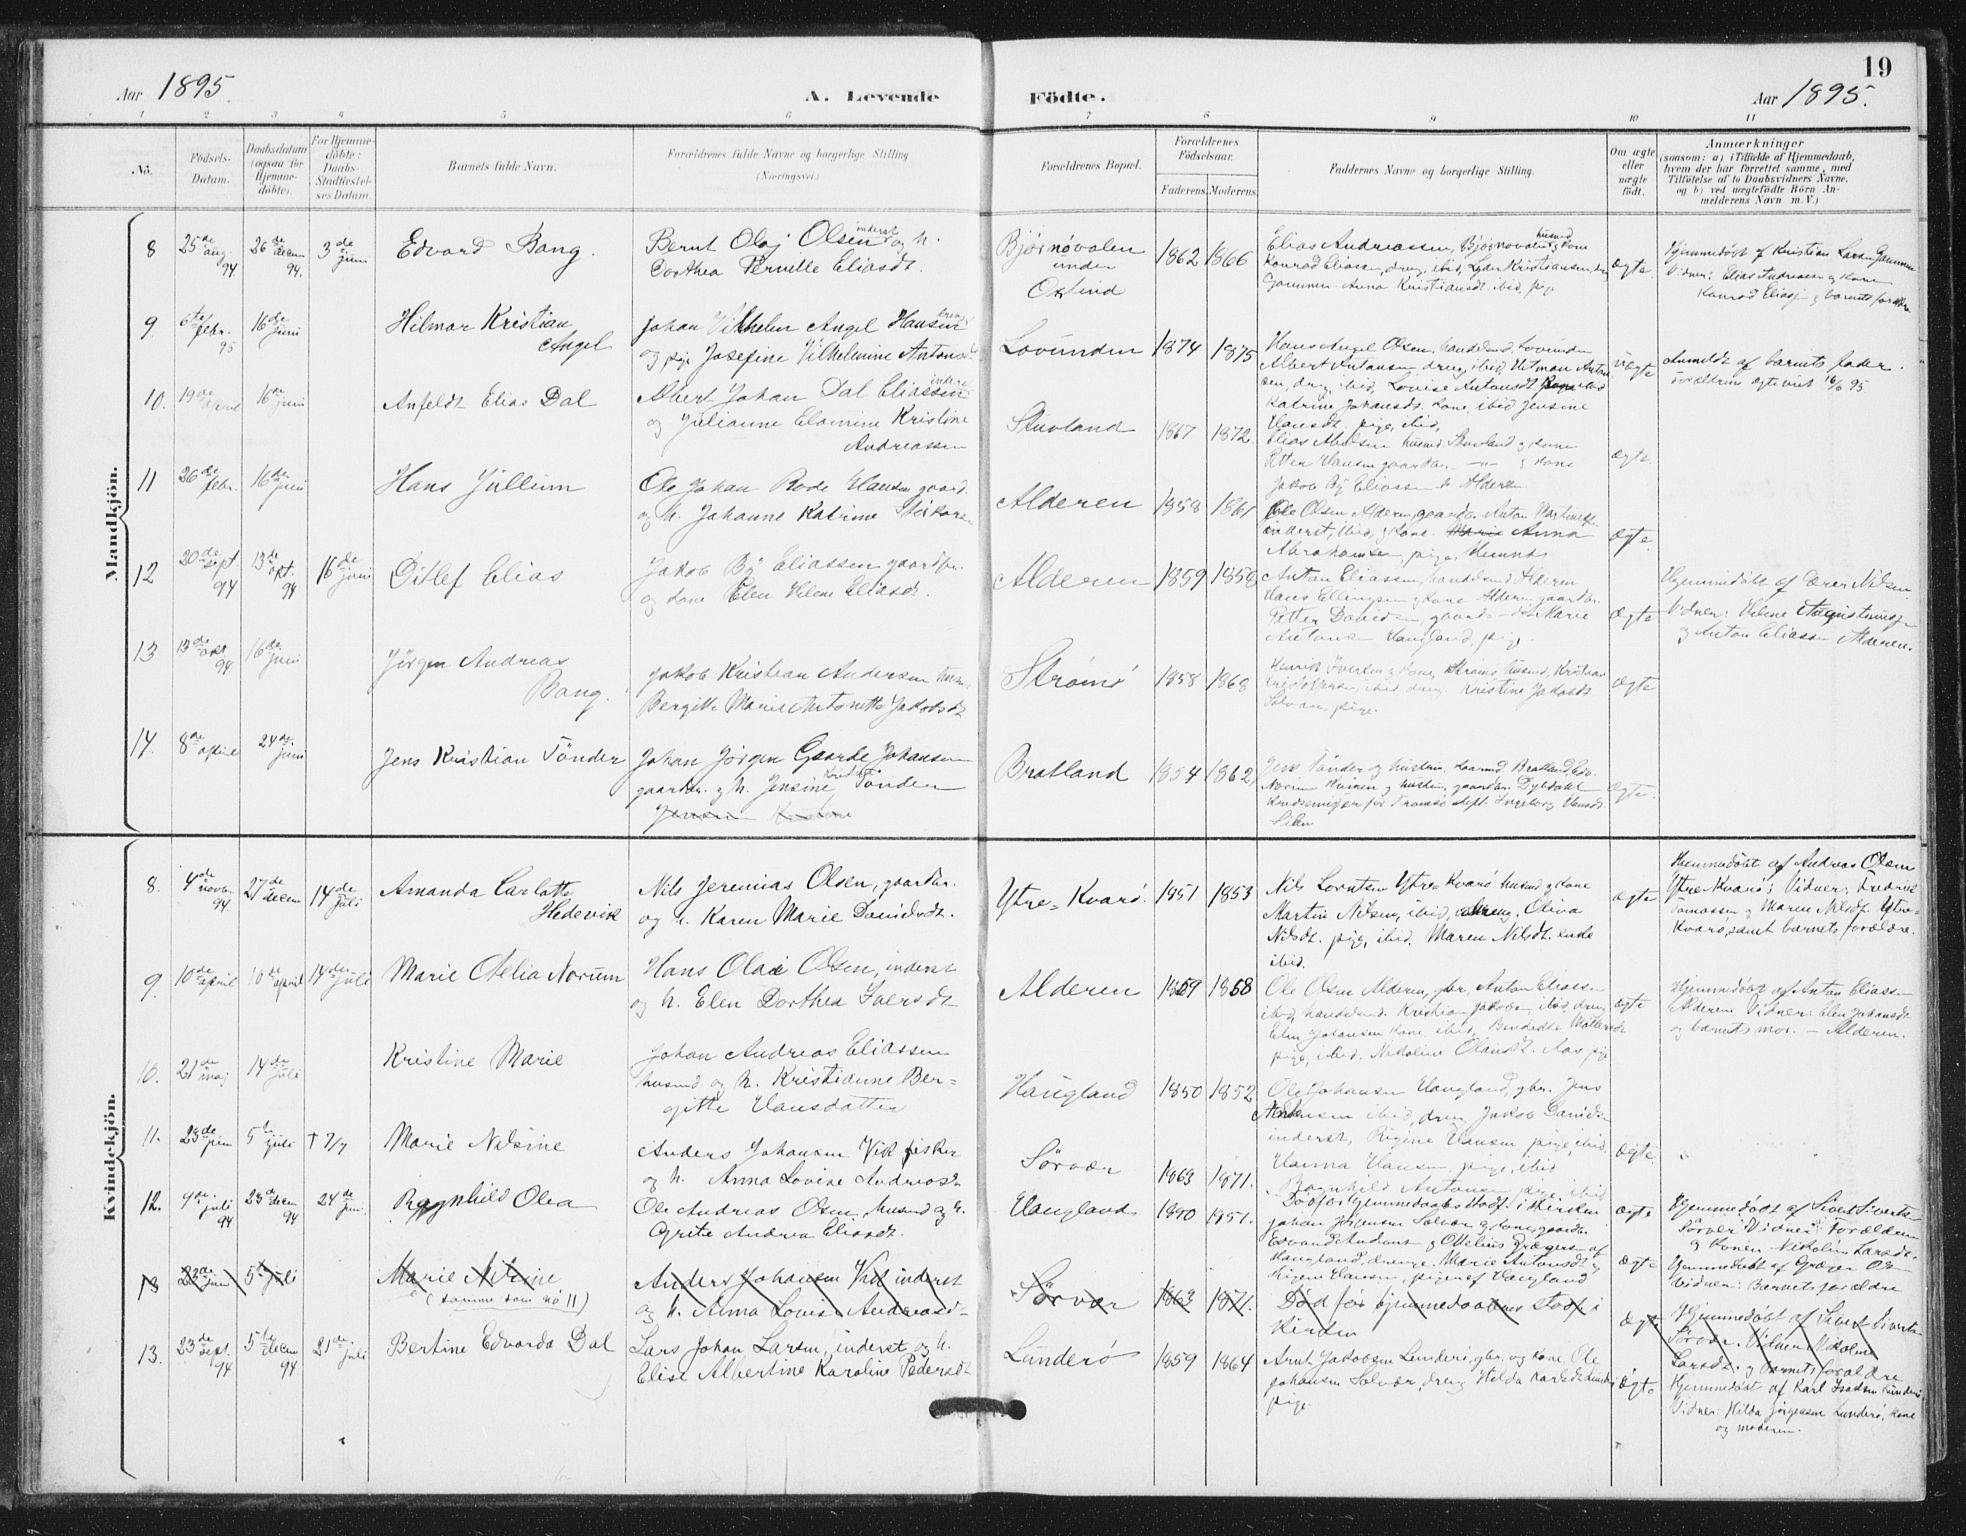 19
Aar 1895.
A. Levende Födte.
Aar 1895.
1 2 3 4 5 6 7 8 9 10 11
No.
Födsels-Datum.
Daabsdatum (ogsaa for Hjemmedöbte).
For Hjemmedöbte: Daabs-Stadfæstelses Datum.
Barnets fulde Navn.
Forældrenes fulde Navne og borgerlige Stilling
(Næringsvei.)
Forældrenes Bopæl.
Forældrenes Födselsaar.
Faderens. Moderens.
Faddernes Navne og borgerlige Stilling.
Om ægte eller uægte födt.
Anmærkninger
(saasom: a) i Tilfælde af Hjemmedaab,
hvem der har forrettet samme, med
Tilföielse af to Daabsvidners Navne,
og b) ved uægtefödte Börn Anmelderens Navn m. V.)
Mandkjön.
8 25de aug. 94 26de decem 94. 3de juni Edvard Bang. Bernt Olaj Olsen inderst og h.
Dorthea Pernille Eliasdt.
Bjørnøvalen under 1862 1866 Elias Andreassen, Bjørnøvalen husmd. & kone
Konrad Eliassen, dreng, ibid,
Gammen. Anna Kristiansdt. ibid, pige
ægte. Hjemmedøbt af Kristian Larsen Gammen
Vidner: Elias Andreasen og kone
Konrad Eliasen og barnets forældre
9. 6te febr. 95 16de juni Hilmar Kristian Angel Johan Vilhelm Angel Hansen
og pige Josefine Vilhelmine Antonsdt
Lovunden 1874 1875 Hans Angel Olsen, handelsmd. Lovunden
Albert Antonsen dreng, ibid, Hetman Antonsen, dreng, ibid, Lovise Antonsdt. pige ibid
Katrine Johansdt. kone, ibid Jensine
Hansdt. pige, ibid,
uægte Anmeldt af barnets fader.
Forældrene ægteviet 16/6 95.
10. 19de april 16de juni Anfeldt Elias Dal Albert Johan Dal Eliassen inderst
og Julianne Elomine Kristine
Andreassen
Stuvland 1867 1872. Elias Abelsen husmd. Stuvland og kone
Petter Hansen gaardbr. — " — & kone
Jakob Bÿ Eliassen do Alderen
ægte.
11 26de febr. 16de juni Hans Jullum Ole Johan Rode Hansen gaard.
og h. Johanne Katrine
Alderen 1858 1861 Ole Olsen Alderen, gaardbr. Anton Martinessen
inderst, ibid, & kone. Marie Anna
Abrahamsen, pige,
ægte.
12 20de sept. 94 13de okt. 94 16de juni Ditlef Elias Jakob Bÿ Eliassen gaardbr.
og kone Elen Helene Eliasdt.
Alderen 1859 1858 Anton Eliassen, handelsmd. Alderen
Hans Ellingsen & kone Alderen, gaardbr.
Petter Davidsen, gaardb — do Marie
Antonsen Haugland, pige
ægte Hjemmedøbt af Peter Nilsen.
Vidner: Helene Augustinussen
og Anton Eliassen Alderen.
13 13de okt 94 16de juni Jörgen Andreas Bang. Jakob Kristian Andersen husm.
Bergitte Marie Antonette Jakobsdt.
Strömö 1858 1868 Henrik Iversen & kone, Strömö, husmd, Kristian
Kristoffersen, ibid dreng. Kristine Jakobsdt
Solvær, pige.
ægte
14. 8de april 24de juni Jens Kristian Tönder Johan Jörgen Gaarde Johansen
gaardbr. & h. Jensine Kristine Tönder
Bratland 1854 1862, Jens Tönder og hustru, Bratland,
og hustru, gaardbr. Dybdahl
for Tromsö stift. Ingeborg Hansdt.
ægte.
Kvindekjön.
8. 4de novbr. 94. 27de decem 14de juli Amanda Carlotte Hedevik Nils Jeremias Olsen, gaardbr.
og h. Karen Marie Danielsdt.
Ytre=Kvarö. 1851 1853 Nils Lorntsen Ytre=Kvarö husmd og kone
Martin Nilsen, ibid, dreng, Oliva
Nilsdt. pige, ibid, Maren Nilsdt. enke
ibid.
ægte Hjemmedøbt af Andreas Olsen
Ytre Kvarö; Vidner: Fredrik
Tomassen og Maren Nilsdt. Ytre=
Kvarö, samt barnets forældre.
9. 10de april 10de april 14de juli Marie Otelia Norum Hans Olai Olsen, inderst
og h. Elen Dorthea Iversdt
Alderen 1859 1858 Ole Olsen Alderen, gbr. Anton Eliassen
ibid, handelsmd. Kristian Jakobsen, ibid, dreng
Elen Johansen kone ibid,
pige, ibid. Nikoline Olausdt. Aas pige
ægte Hjemmedøbt af Anton Eliassen
Alderen. Vidner: Elen Johansdt
og barnets mor. — Alderen.
10. 21de maj 14de juli Kristine Marie Johan Andreas Eliassen
husmd og h. Kristianne Ber=
gitte Hansdatter
Haugland 1850 1852 Ole Johansen Haugland, gbr. Jens
Antonsen ibid, dreng Jakob Daniels.
inderst, Regine Hansen pige, ibid
Hanna Hansen, pige, ibid
ægte.
11. 23de juni 5te juli † 7/7 Marie Nilsine Anders Johansen Vik fisker
og h. Anna Lovise Andreasdt
Sörvær 1863 1871. Ragnhild Antonsen pige, ibid
Död för hjemmedaabens stadf. i kirken
ægte
12. 4de juli 94 23de decem 94 24de juni. Ragnhild Olea Ole Andreas Olsen, husmd og h.
Grete Andrea Eliasdt.
Haugland 1851. Johan Jörgensen Solvær & kone, gaardbr.
Edvard
Haugland, drenge. Marie Antonsdt &
Regine Hansen, piger af Haugland
ægte Hjemmedøbt af Sivert Sivertsen
Sörvær. Vidner: Forældrene
og konen Nikoline Larsdt.
Hjemmedøbt af
Vidner: Barnets forældre
13 23de juni 5te juli Marie Nilsine
(samme som No 11)
Anders Johansen Vik inderst
og h. Anna Lovise Andreasd-
Sörvær 1863 1871. Död för hjemmedaabens stadf i
kirken
ægte Hjemmedøbt af Sivert Siverts.
Sörvær. Vidner, Nikoline
Larsdt. og barnets forældre
13. 23de sept. 94 5te decem 94 21de juli Bertine Edvarda Dal Lars Johan Larsen, inderst og h.
Elise Albertine Karoline Pedersdt
Lunderö 1859 1864 Arnt Jakobsen Lunderö, gbr. og kone. Ole
Johansen Solvær, dreng Hilda
pige.
ægte Hjemmedøbt af Karl Isaksen Lunderö
Vidner: Hilda Jörgensen Lunderö, kone
og moderen.